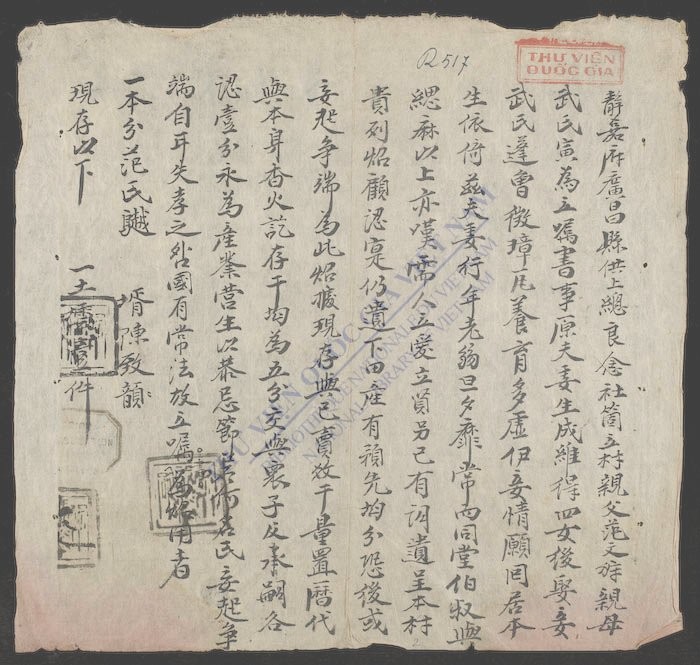 R517
THƯ VIỆN
QUỐC GIA
靜嘉府廣昌縣供上總良念社箇立村親父范文族親母
武氏寅為立囑書事原夫妻生成維得四女後娶妾
武氏蓬會徵璋瓦養育多虛伊妾情願同居本
生依倚茲夫妻行年老翁旦夕靡常而同堂伯叔與
緦麻以上亦嘆需人立愛立賢另已有詞遺呈本村
貴列炤顧認寔仍遺下田產有預先均分恐後或
妄起爭端為此炤據現存與已賣干量置曆代
與本身香火訖存干均為五分交與衷子及承嗣各
認壹分永為產業營生以恭忌節若何名氏妄起爭
端自耳失孝之咎國有常法故立囑為炤用者
一本分范氏 壻陳致韻
現存以下 一土 件
THƯ VIỆN QUỐC GIA VIỆT NAM
BIBLIOTHÈQUE NATIONALE DU VIETNAM
NATIONAL LIBRARY OF VIETNAM